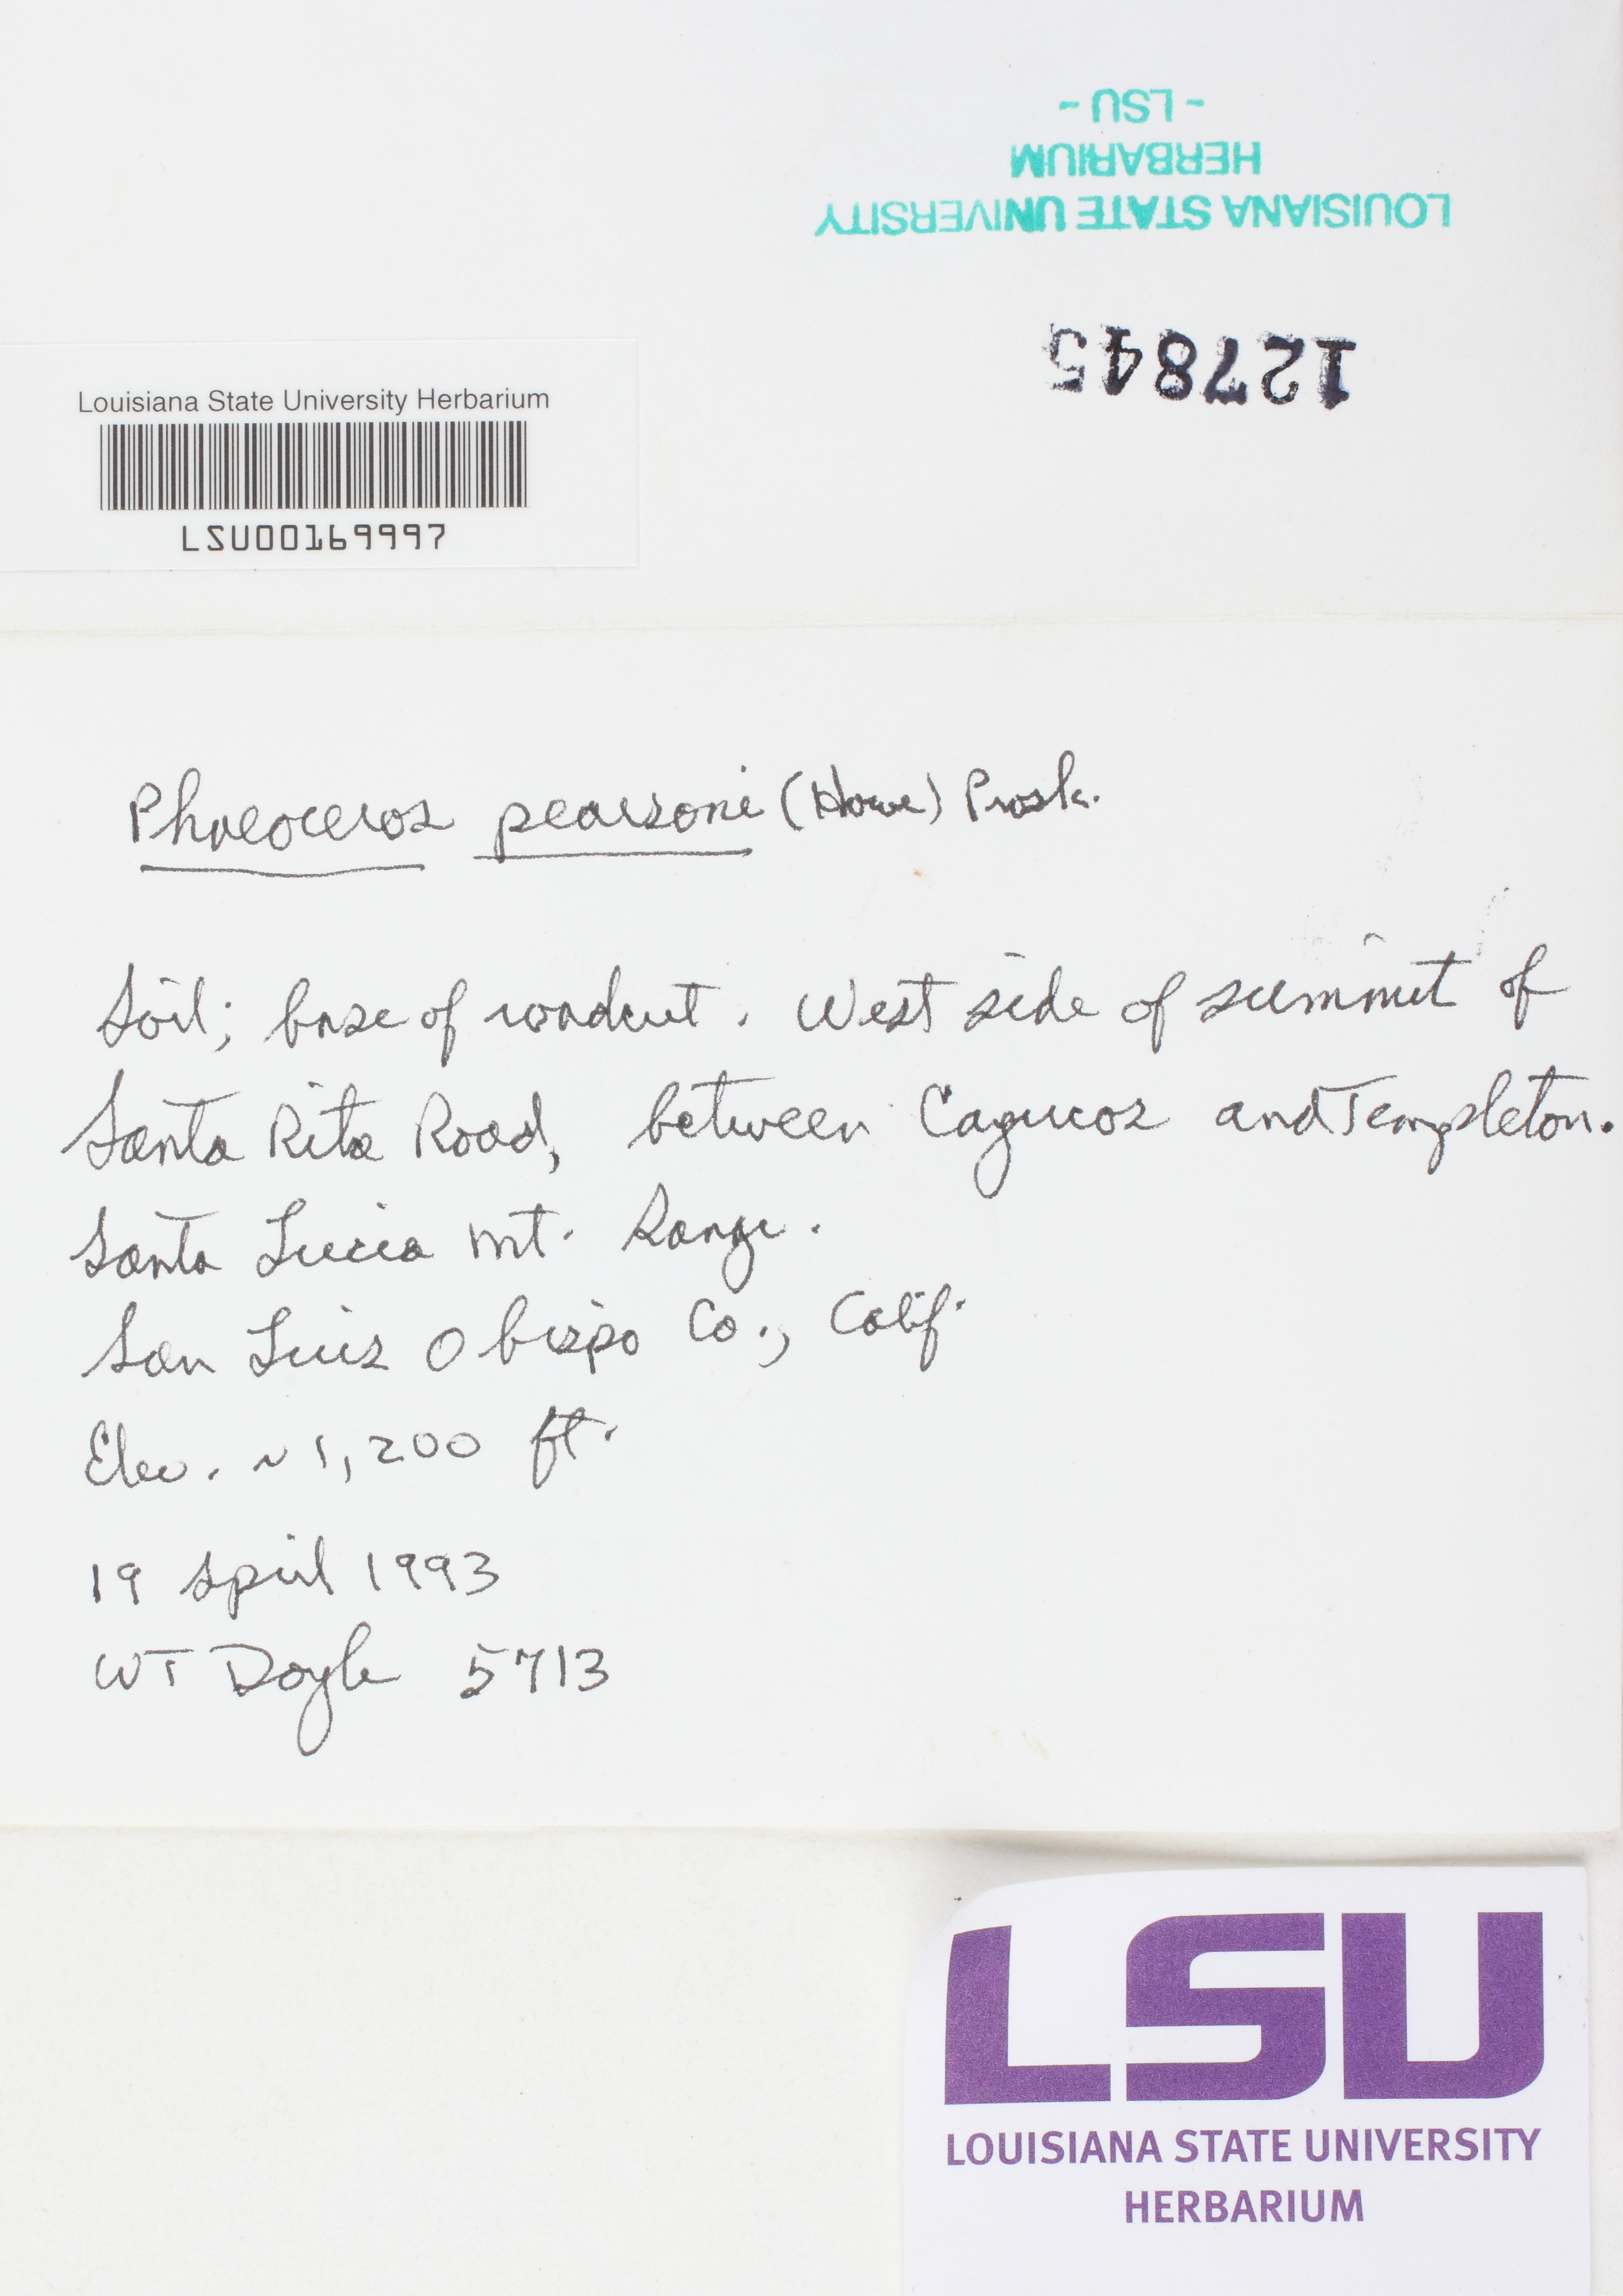 - LSU -
HERBARIUM
LOUISIANA STATE UNIVERSITY
127845
Louisiana State University Herbarium
LSU00169997
Phaeoceros pearsoni (Howe) Prosk.
Soil; base of roadcut. West side of summit of
Santa Rita Road, between Cayucos and Templeton.
Santa Lucia Mt. Range.
San Luis Obispo Co., Calif.
Elev. ~1,200 ft.
19 April 1993
WT Doyle 5713
LSU
LOUISIANA STATE UNIVERSITY
HERBARIUM